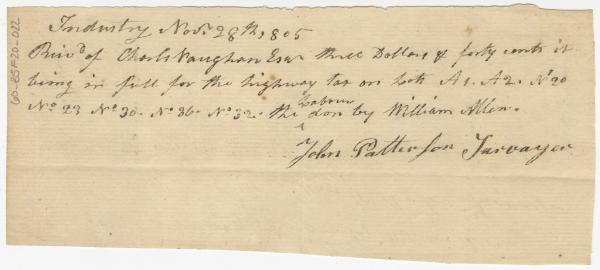 Industry Novr 28th, 1805
Reiv'd of Charls Vaughan Esqr three Dollars & forty cents it
being in full for the highway tax on lots A1. A2. No 20
No 23 No 30. No 36. No 32. the Labour don by William Allen.
John Patterson Survayor
60-85F20-022